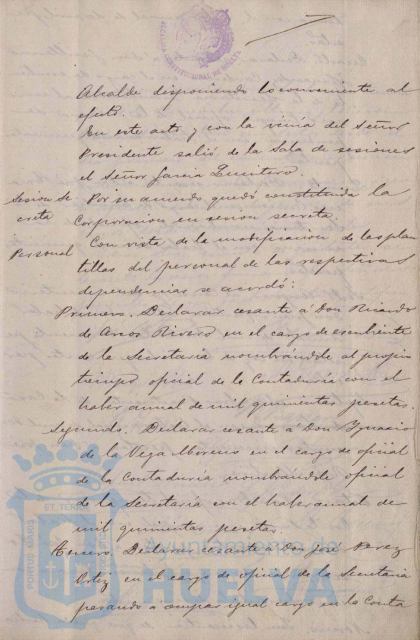 Alcalde disponiendo lo conveniente al
efecto.
En este acto y con la venia del Señor
Presidente salió de la Sala de sesiones
el Señor Garcia
Sesion Se
creta
Por su acuerdo quedó constituida la
Corporacion en sesion secreta.
Personal
Con vista de la modificacion de las plan
tillas del personal de las respectivas
dependencias se acordó:
Primero. Declarar cesante á Don Ricardo
de Arcos Rivero en el cargo de escribiente
de la Secretaría nombrándole al propio
tiempo oficial de la Contaduría con el
haber annal de mil quinientas pesetas.
Segundo. Declarar cesante á Don Ygnacio
de la Vega Moreno en el cargo de oficial
de la Contaduría nombrándole oficial
de la Secretaría con el haber annal de
mil quinientas pesetas.
Tercero. Declarar cesante á Don José Perez
Ortiz en el cargo de oficial de la Secretaria
pasando á ocupar igual cargo en la Conta
PORTUS MARIS
ET TERRE
Ayuntamiento de
HUELVA